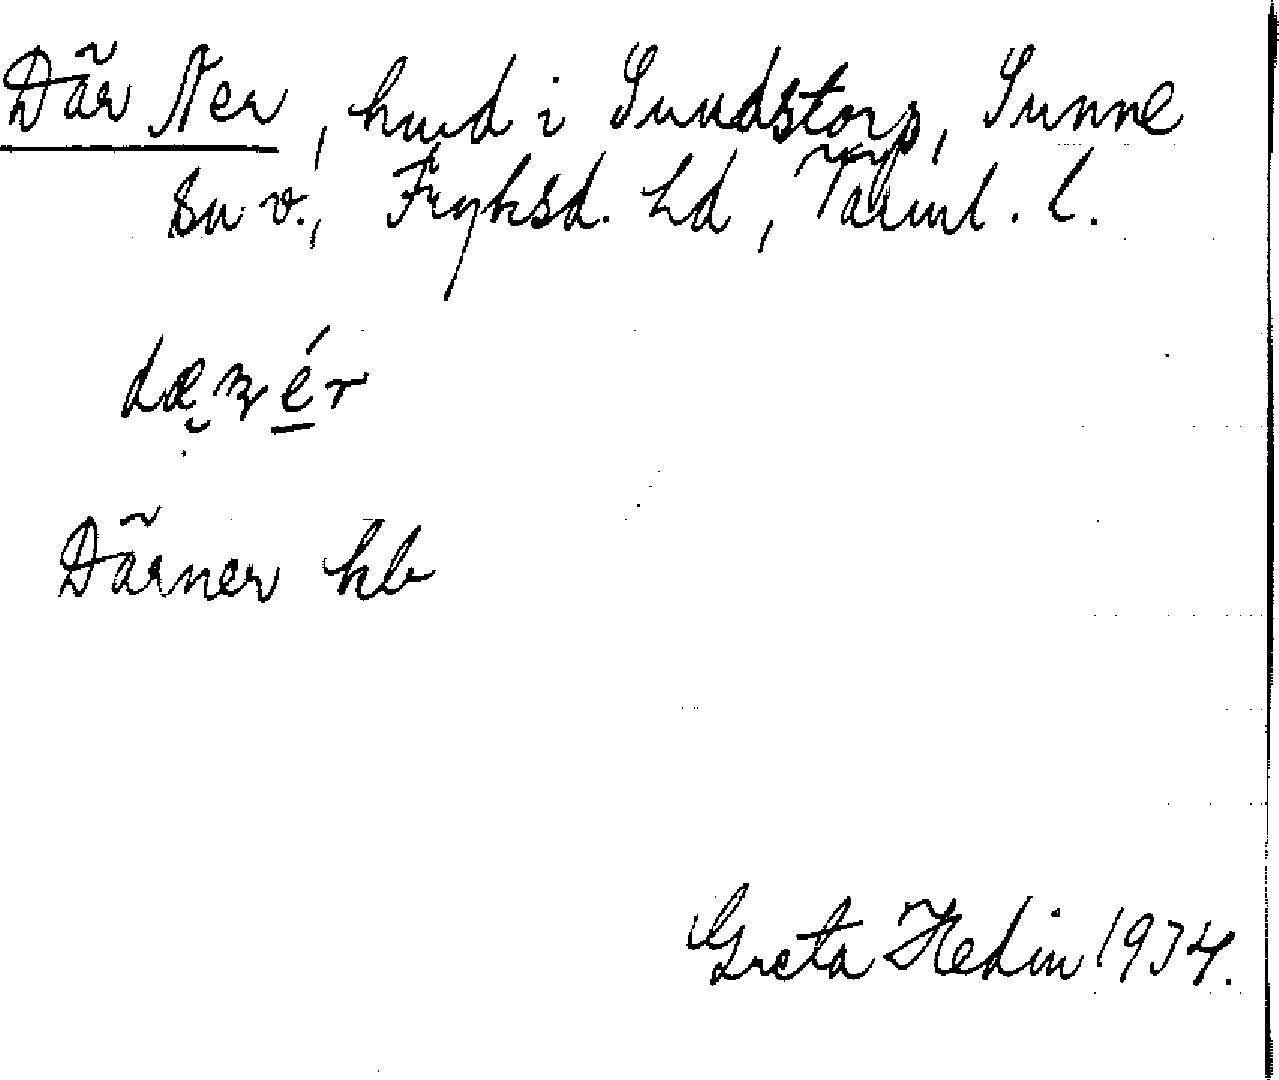 Där Ner, hmd i Sundstorp, Sunne
sn v., Fryksd. hd, Värml. l.
Därner kb
Greta Hedin 1934.